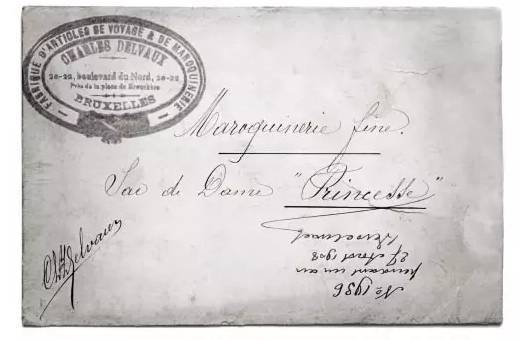 FABRIQUE D'ARTICLES DE VOYAGE & DE MAROQUINERIE
CHARLES DELVAUX
20-22, boulevard du Nord, 20-22
Près de la place de Brouckère
BRUXELLES
Maroquinerie fine.
Sac de Dame "Princesse"
Ch. Delvaux
No 1986
pendant un an
27 Août 1908